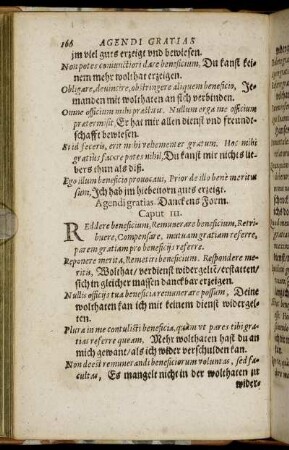 166 AGENDI GRATIAS
jm viel guts erzeigt vnd bewiesen.
Non potes coniunctiori dare beneficium. Du kanst keinem
nem mehr wolthat erzeigen.
Obligare, deuincire, obstringere aliquem beneficio, Jemanden
manden mit wolthaten an sich verbinden.
Omne officium mihi præstitit. Nullum erga me officium
prætermisit Er hat mir allen dienst vnd freundtschafft
schafft bewiesen.
Si id feceris, erit mihi vehementer gratum. Hoc mihi
gratius facere potes nihil, Du kanst mir nichts liebers
bers thun als diß.
Ego illum beneficio prouocaui, Prior de illo benè meritus
sum, Ich hab im hiebeuorn guts erzeigt.
Agendi gratias. Danckens Form.
Caput III.
REddere beneficium, Remunerare beneficium, Retribuere,
buere, Compensare, mutuam gratiam referre,
parem gratiam pro beneficijs referre.
Reponere merita, Remetiri beneficium. Respondere meritis,
ritis, Wolthat/ verdienst widergeltē/ erstatten/
sich in gleicher massen danckbar erzeigen.
Nullis officijs tua beneficia remunerare possum, Deine
wolthaten kan ich mit keinem dienst widergelten.
ten.
Plura in me contulisti beneficia, quàm vt pares tibi gratias
tias referre queam. Mehr wolthaten hast du an
mich gewant/ als ich wider verschulden kan.
Non deest remunerandi beneficiorum voluntas, sed facultas,
cultas, Es mangelt nicht in der wolthaten zu
wider-